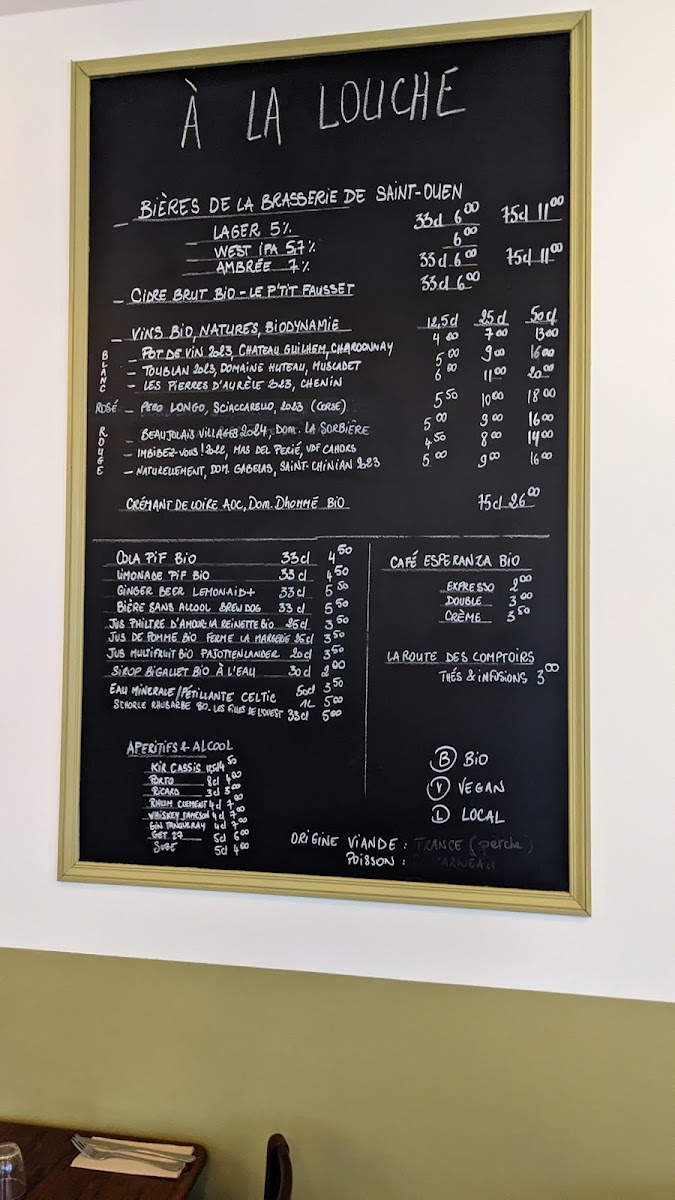 À LA LOUCHE
– BIÈRES DE LA BRASSERIE DE SAINT-OUEN
LAGER 5% 33cl 6.00 75cl 11.00
WEST IPA 5,7% 6.00
AMBRÉE 7% 33cl 6.00 75cl 11.00
– CIDRE BRUT BIO - LE P'TIT FAUSSET 33cl 6.00
– VINS BIO, NATURES, BIODYNAMIE 12,5cl 25cl 50cl
BLANC – POT DE VIN 2023, CHATEAU GUILHEM, CHARDONNAY 4.00 7.00 13.00
– TOUBLAN 2023, DOMAINE HUTEAU, MUSCADET 5.00 9.00 16.00
– LES PIERRES D'AURÈLE 2023, CHENIN 6.00 11.00 20.00
ROSÉ – PERO LONGO, SCIACCARELLO, 2023 (CORSE) 5.50 10.00 18.00
ROUGE – BEAUJOLAIS VILLAGES 2024, DOM. LA SORBIÈRE 5.00 9.00 16.00
– IMBIBEZ-VOUS! 2022, MAS DEL PERIÉ, VDF CAHORS 4.50 8.00 14.00
– NATURELLEMENT, DOM. GABELAS, SAINT-CHINIAN 2023 5.00 9.00 16.00
CRÉMANT DE LOIRE AOC, DOM. DHOMMÉ BIO 75cl 26.00
COLA PIF BIO 33cl 4.50
LIMONADE PIF BIO 33cl 4.50
GINGER BEER LEMONAID+ 33cl 5.50
BIÈRE SANS ALCOOL BREWDOG 33cl 5.50
JUS PHILTRE D'AMOUR LA REINETTE BIO 25cl 3.50
JUS DE POMME BIO FERME LA MARGERIE 25cl 3.50
JUS MULTIFRUIT BIO PAJOTTENLANDER 20cl 3.50
SIROP BIGALLET BIO À L'EAU 30cl 2.00
EAU MINERALE/PÉTILLANTE CELTIC 50cl 3.50
1L 5.00
SCHORLE RHUBARBE BO. LES FILLES DE L'OUEST 33cl 5.00
CAFÉ ESPERANZA BIO
EXPRESSO 2.00
DOUBLE 3.00
CRÈME 3.50
LA ROUTE DES COMPTOIRS
THÉS & INFUSIONS 3.00
APERITIFS & ALCOOL
KIR CASSIS 12cl 4.50
PORTO 8cl 4.00
RICARD 3cl 3.00
RHUM CLEMENT 4cl 7.00
WHISKEY JAMESON 4cl 7.00
GIN TANQUERAY 4cl 7.00
GET 27 5cl 6.00
SUZE 5cl 4.00
B BIO
V VEGAN
L LOCAL
ORIGINE VIANDE : FRANCE (perche)
POISSON :